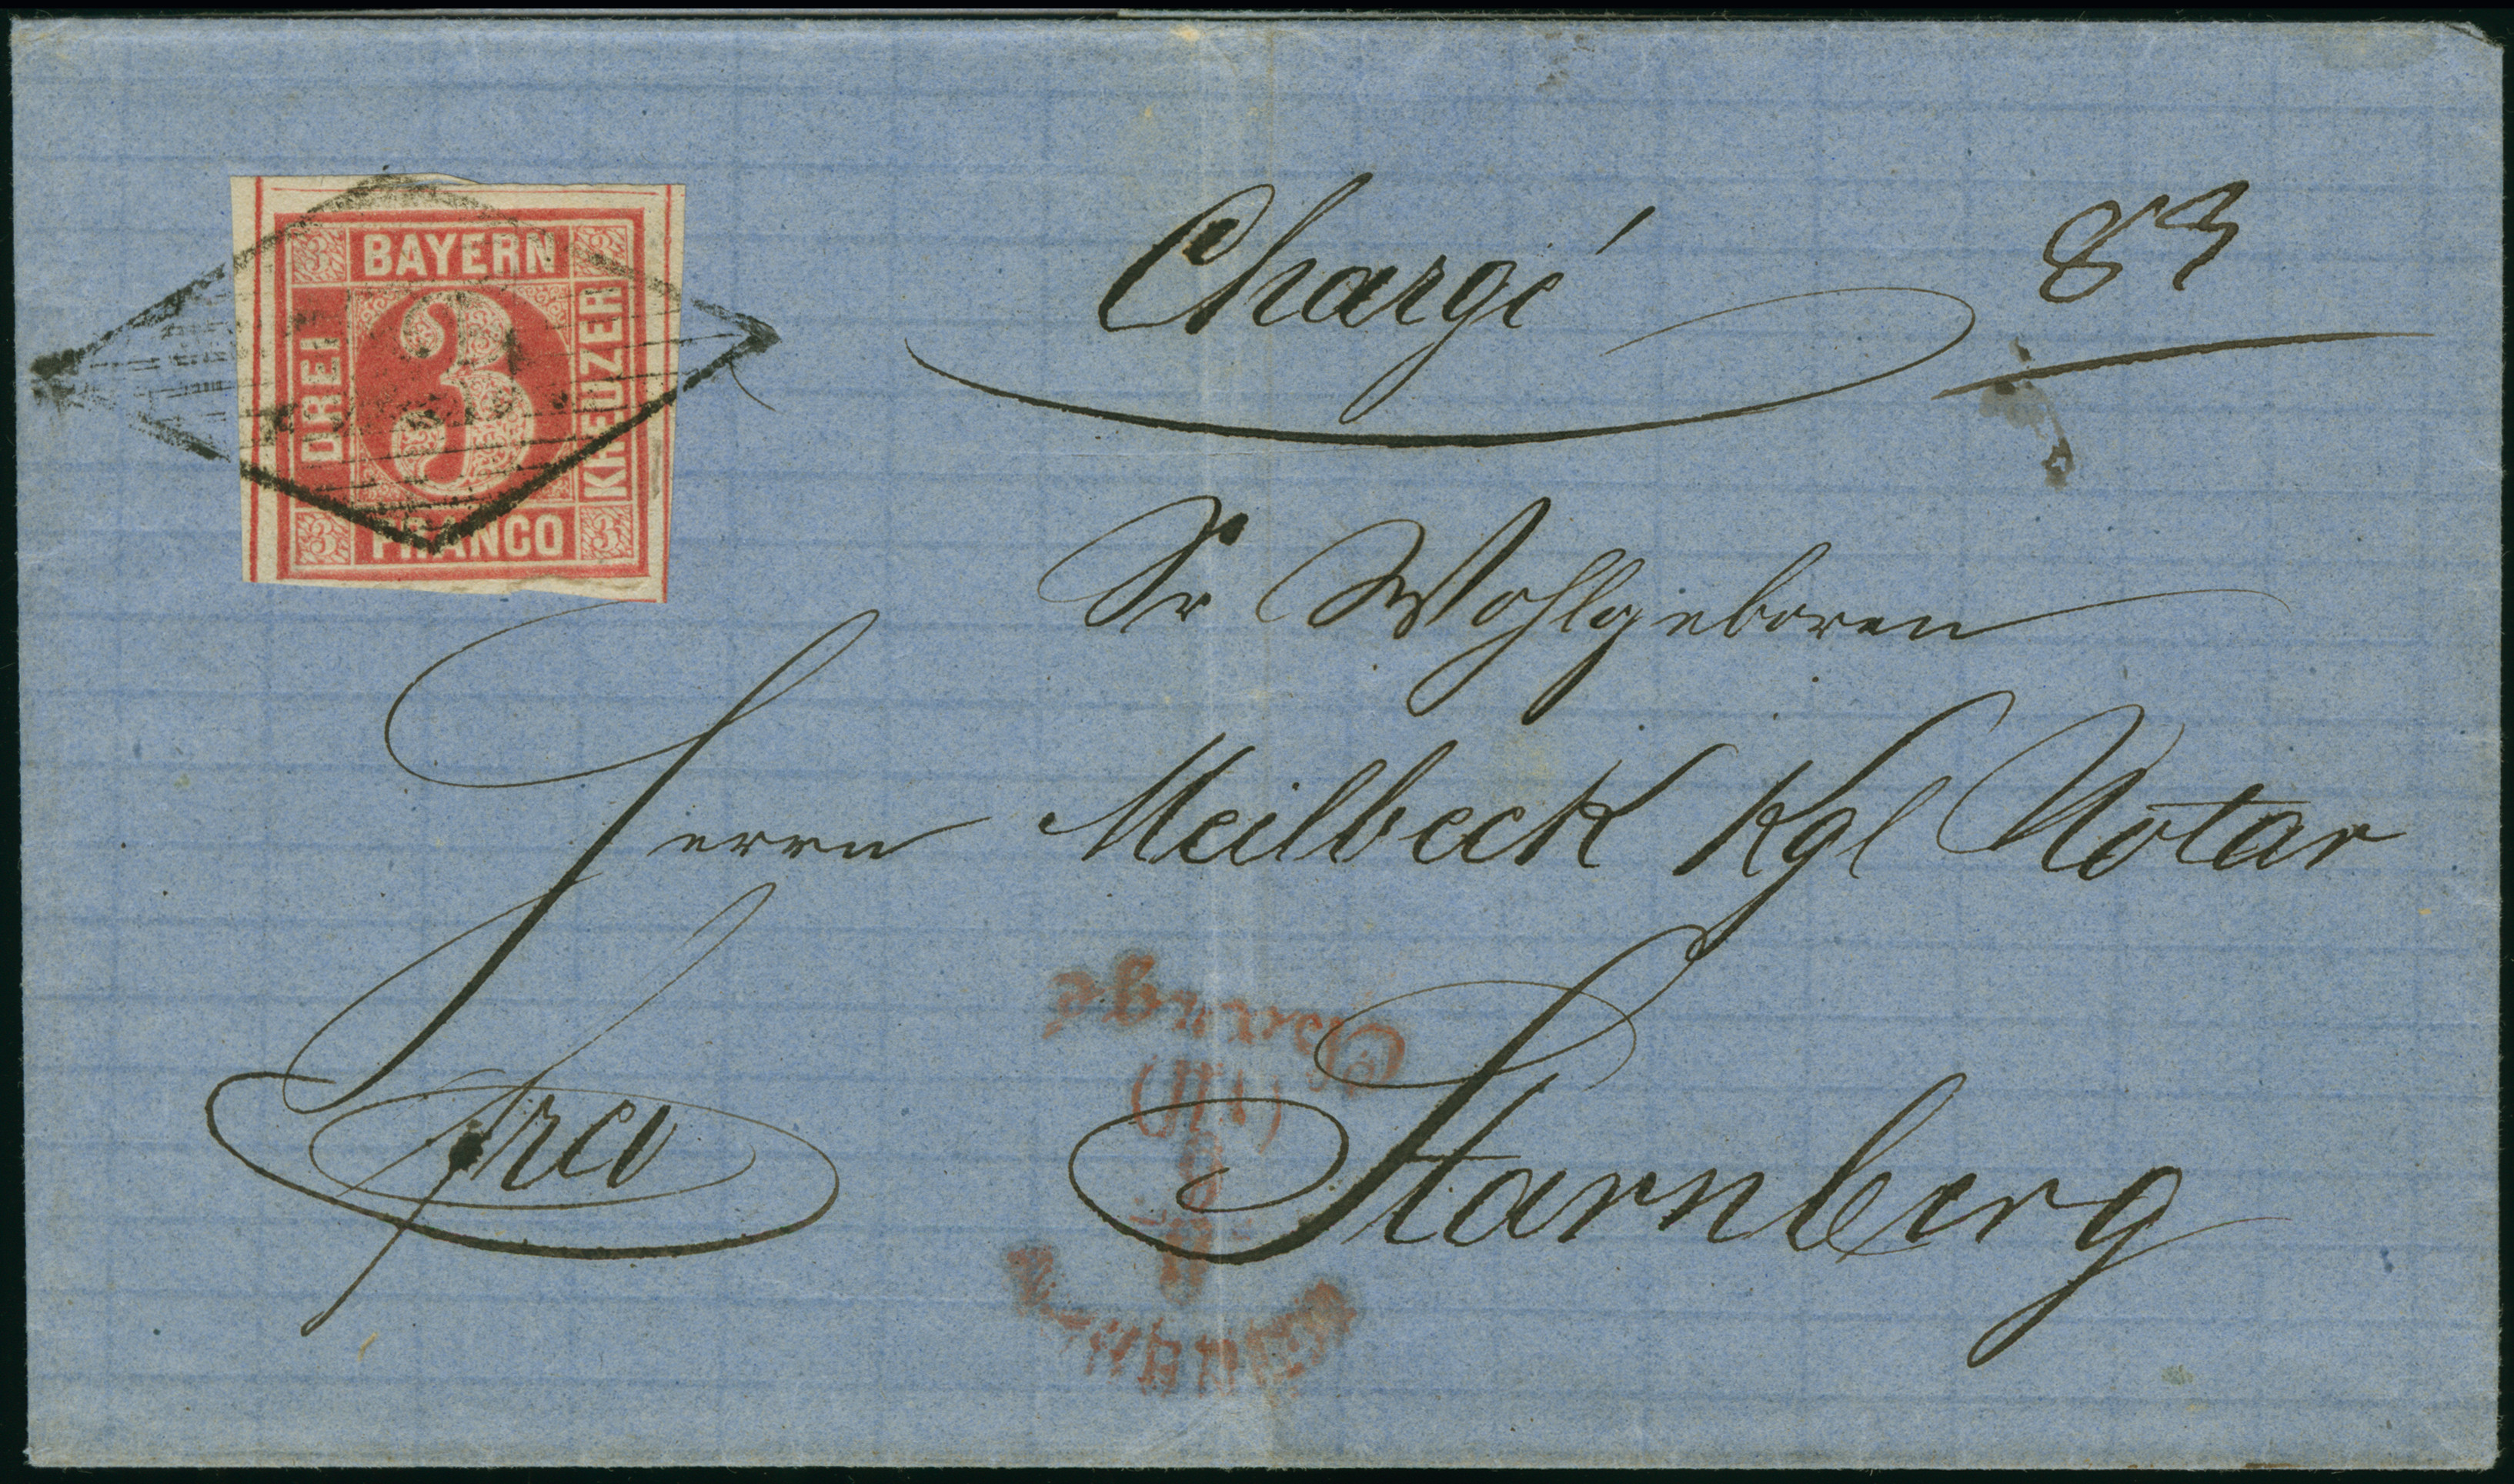 3 BAYERN 3
DREI
3
KREUZER
3 FRANCO 3
Chargé 83
Sr Wohlgeboren
Herrn Meilbeck Kgl Notar
frco
Starnberg
MÜNCHEN
(III)
Chargé